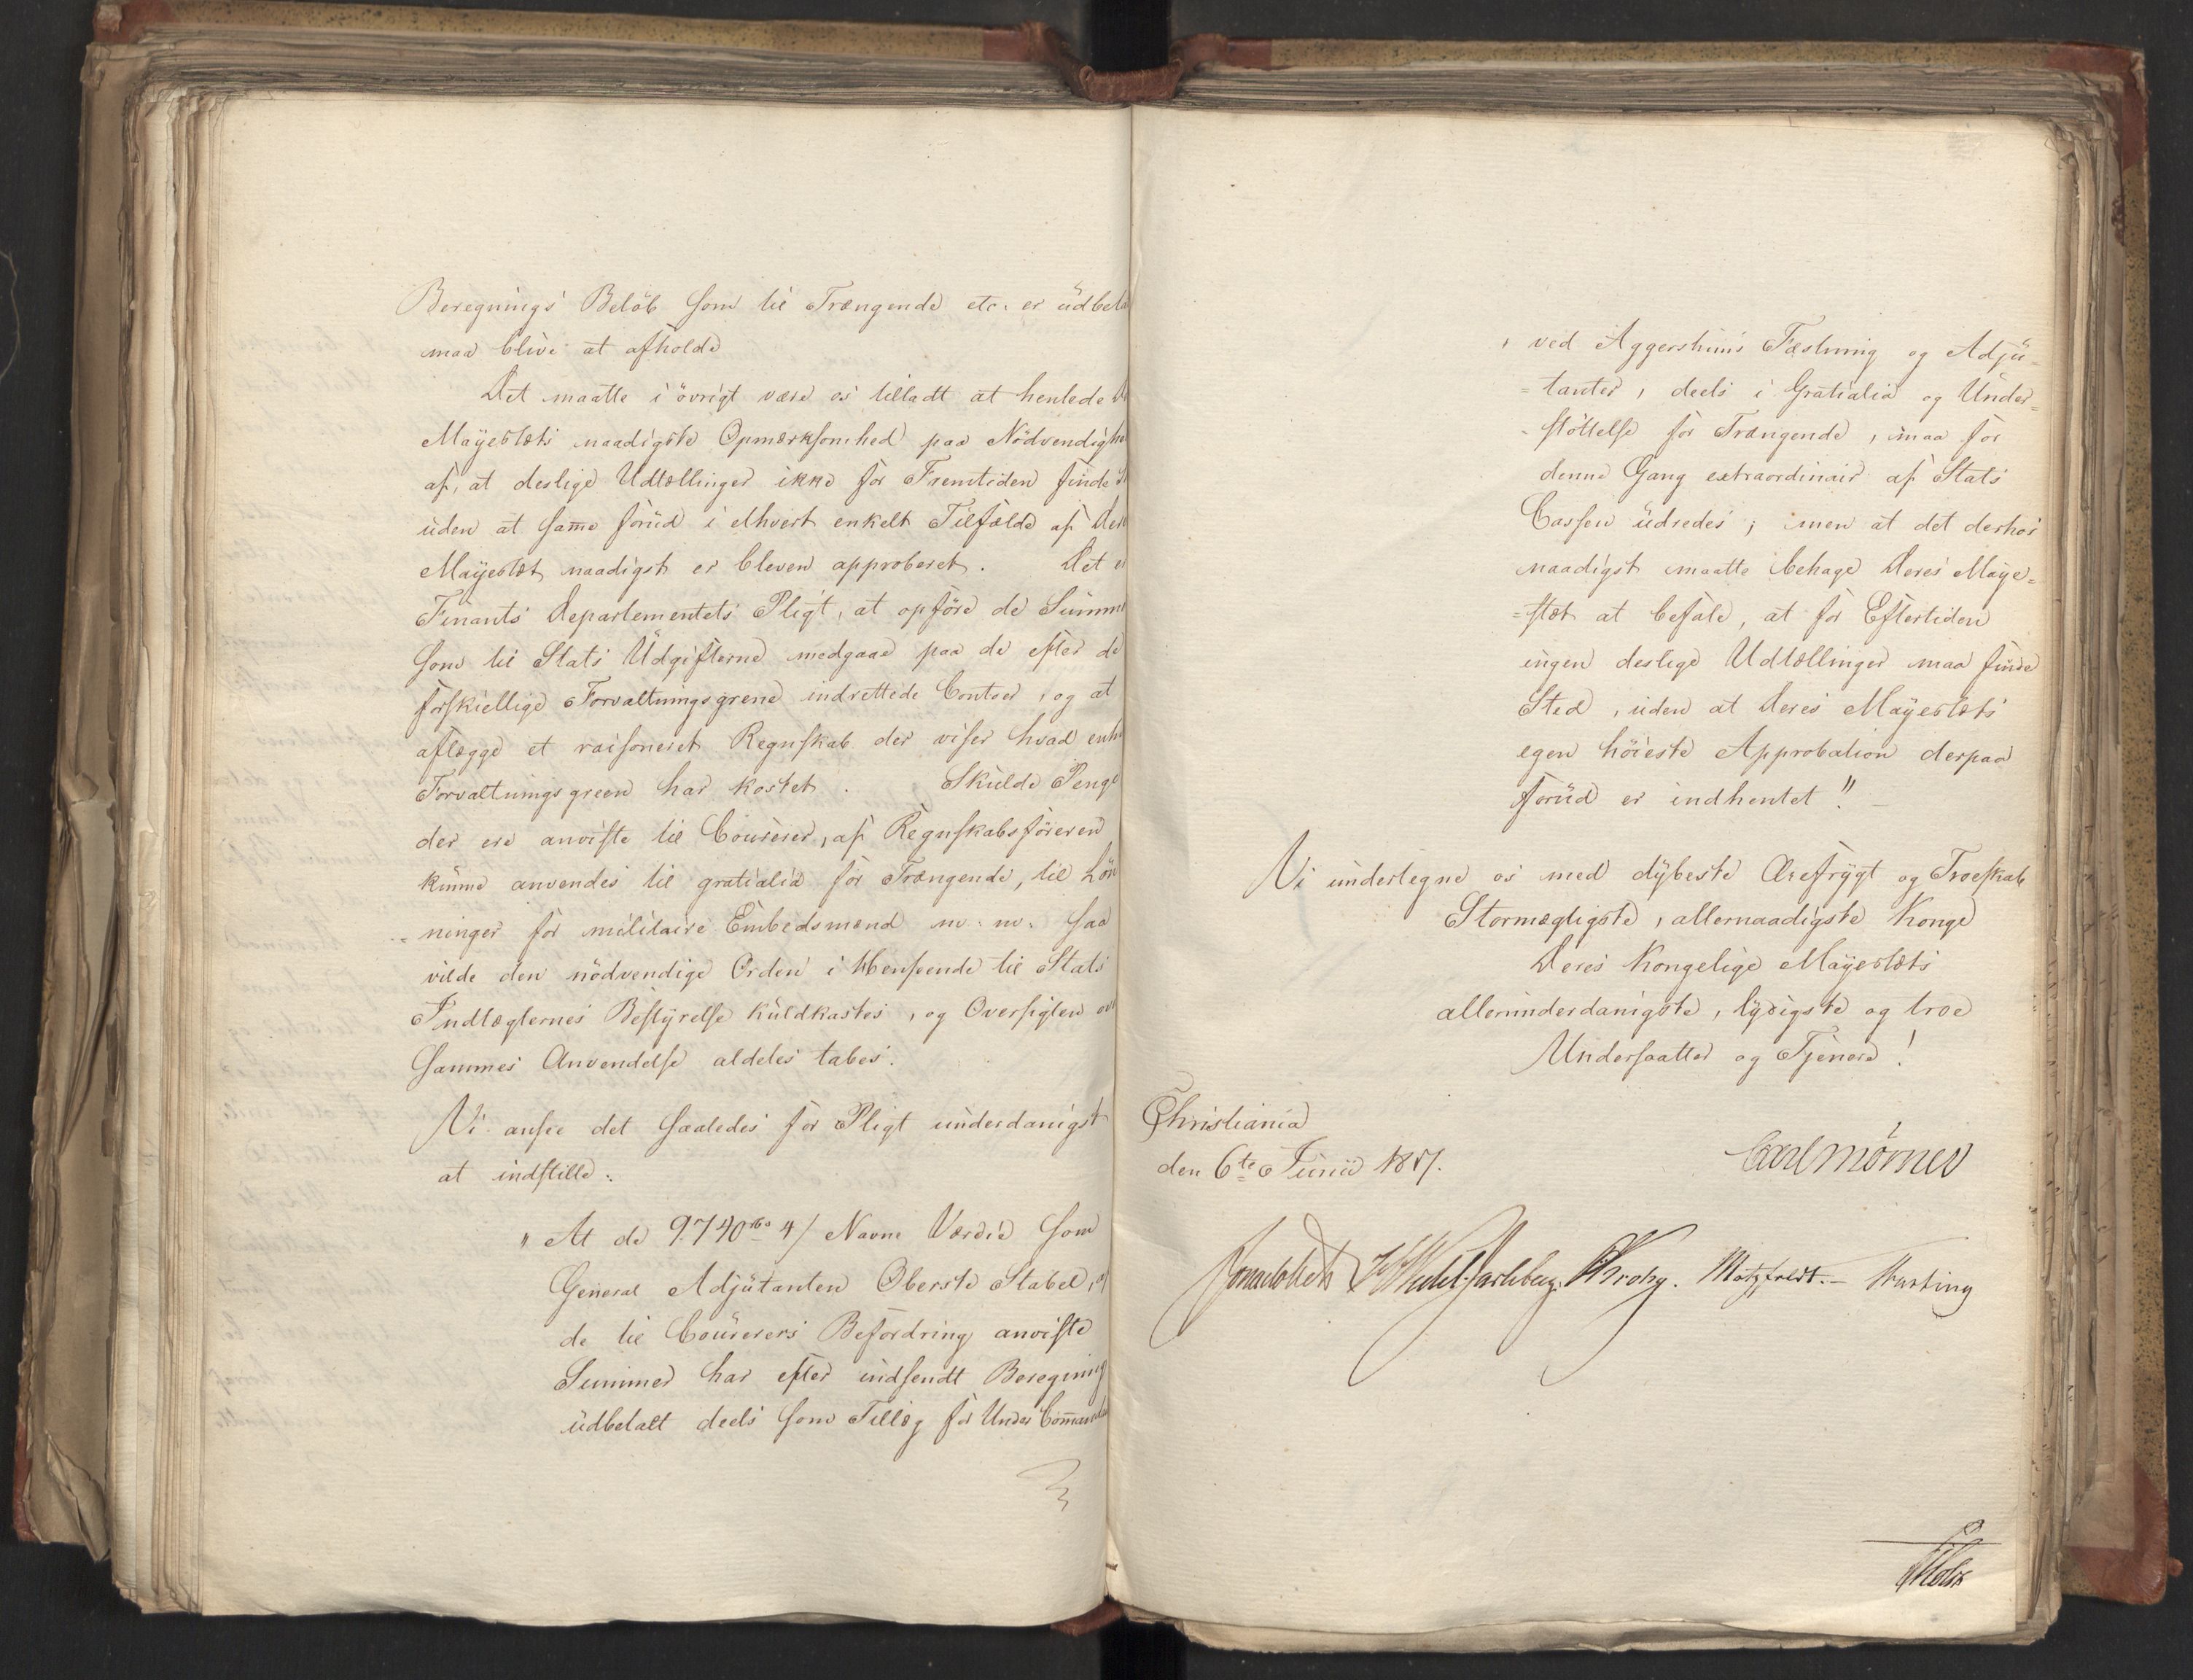 Beregnings Beløb som til Trængende etc. er udbeta
maa blive at afholde
Det maatte i øvrigt være os tilladt at henlede D
Mayestæts naadigste Opmærksomhed paa Nødvendighe
af, at deslige Udtællinger ikke for Fremtiden finde St
uden at samme forud i ethvert enkelt Tilfælde af Der
Mayestæt naadigst er bleven approberet. Det er
Finants Departementets Pligt, at opføre de Summe
som til Stats Udgifterne medgaae paa de efter de
forskiellige Forvaltningsgrene indrettede Contoer, og at
aflægge et raisoneret Regnskab der viser hvad enhv
Forvaltningsgreen har kostet. Skulde Penge
der ere anviste til Courerer, af Regnskabsføreren
kunne anvendes til gratialia for Trængende, til Løn
=ninger for militaire Embedsmænd m: m: saa
vilde den nødvendige Orden i Henseende til Stats
Indtægternes Bestyrelse kuldkastes, og Oversigten ove
sammes Anvendelse aldeles tabes.
Vi ansee det saaledes for Pligt underdanigst
at indstille:
" At de 9740 rbd 4 / Navne Værdie som
General Adjutanten Oberste Stabel, af
de til Courerers Befordring anviste
Summer har efter indsendt Beregning
udbetalt deels som Tillæg for Under Commanda
, ved Aggershuus Fæstning og Adju=
=tanter, deels i Gratialia og Under=
=støttelse for Trængende, maa for
denne Gang extraordinair af Stats
Cassen udredes; men at det derhos
naadigst maatte behage Deres Maye=
=stæt at befale, at for Eftertiden
ingen deslige Udtællinger maa finde
Sted, uden at Deres Mayestæts
egen høieste Approbation derpaa
forud er indhentet!"
Vi undertegne os med dybeste Ærefrygt og Troeskab
Stormægtigste, allernaadigste Konge
Deres Kongelige Mayestæts
allerunderdanigste, lydigste og troe
Undersaatter og Tjenere!
Christiania
den 6te Junii 1817.
Carl Mörner
Sommerhielm Wedel Jarlsberg. Krohg. Motzfeldt. –
Holst